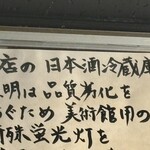 店の日本酒冷蔵庫
明は品質劣化を
ぐため美術館用の
殊蛍光灯を